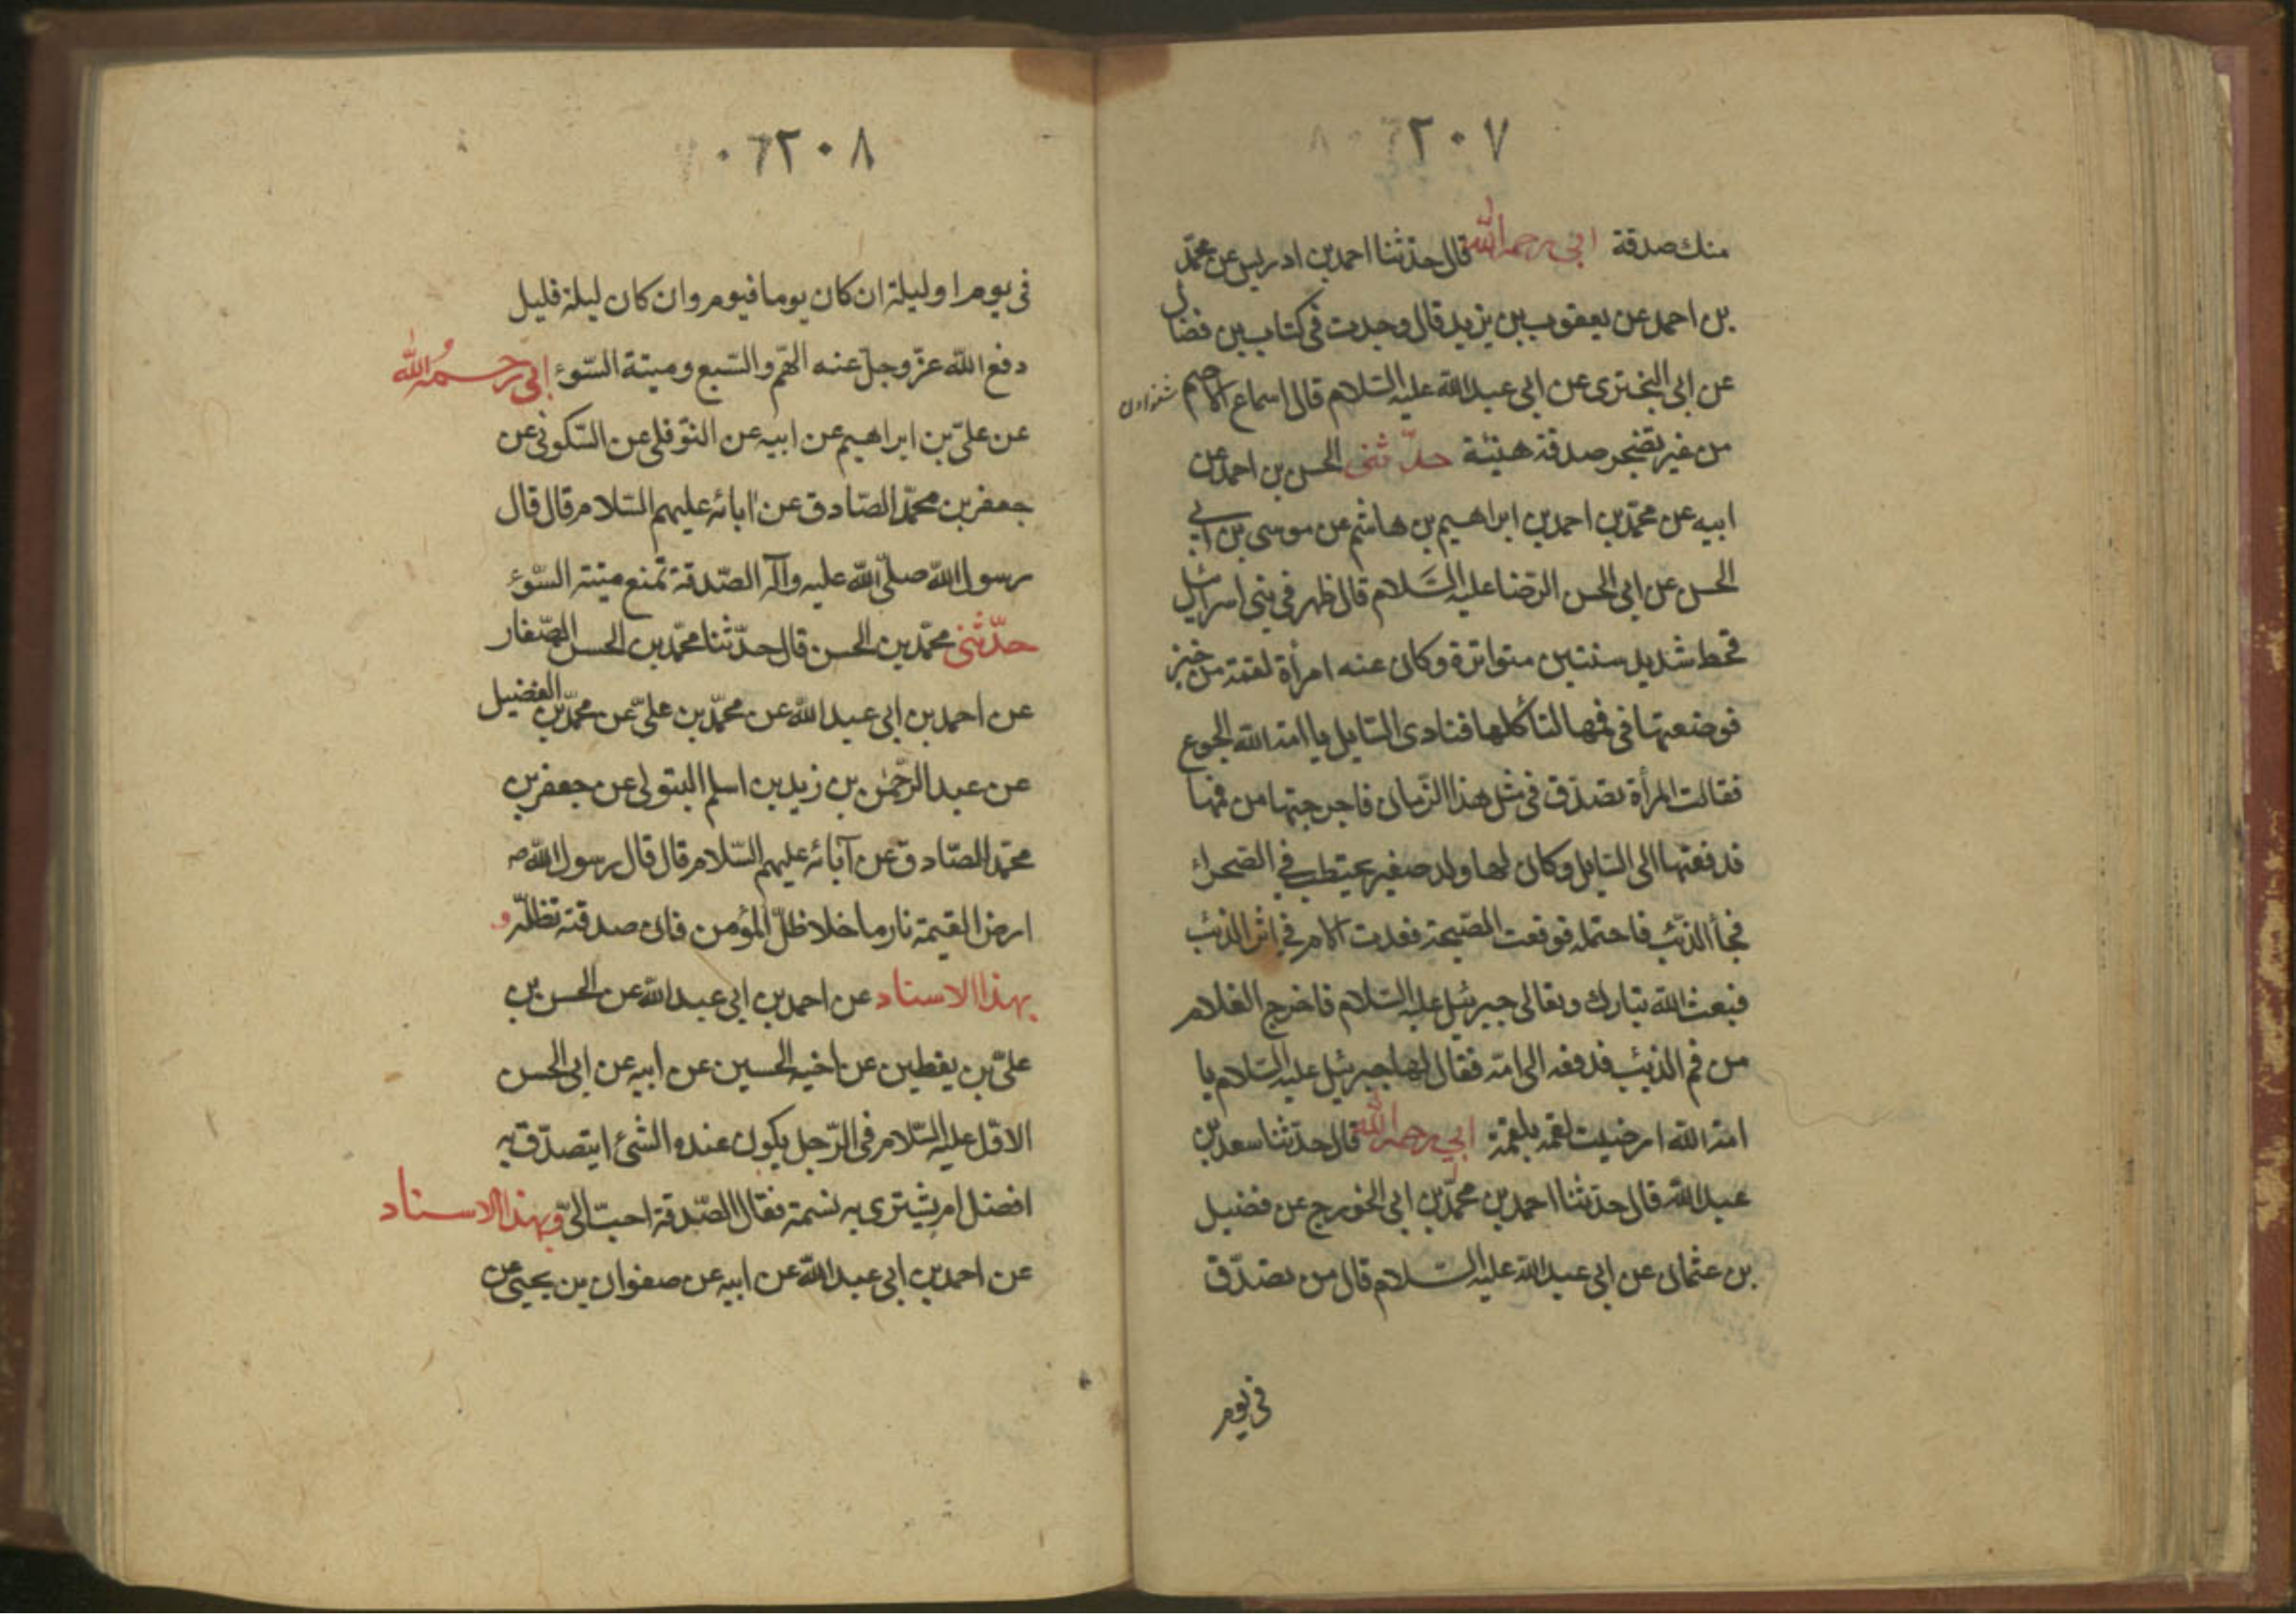 ٢٠٧
منك صدقة ابى رحمه الله قال حدثنا احمد بن ادريس عن محمّد
بن احمد عن يعقوب بن يزيد قال وجدت فى كتاب بن فضال
عن ابى البخترى عن ابى عبد الله عليه السلام قال اسماع الاصم
من غير تضجر صدقة هنيئة حدّثنى الحسن بن احمد عن
ابيه عن محمّد بن احمد بن ابراهيم بن هاشم عن موسى بن ابى
الحسن عن ابى الحسن الرضا عليه السّلام قال ظهر فى بنى اسرائيل
قحط شديد سنتين متواترة وكان عنه امرأة لقمة من خبز
فوضعتها فى فمها لتأكلها فنادى السّايل يا امة الله الجوع
فقالت المرأة تصدّق فى مثل هذا الزّمان فاجرجتها من فمها
فدفعتها الى السّايل وكان لها ولد صغير يحتطب فى الصّحراء
فجأ الذّئب فاحتمله فوقعت الصّيحة فعدت الام فى اثر الذئب
فبعث الله تبارك وتعالى جبرئيل عليه السّلام فاخرج الغلام
من فم الذئب فدفعه الى امّه فقال لها جبرئيل عليه السّلام يا
امة الله ارضيت لقمه بلقمة ابى رحمه الله قال حدّثنا سعد بن
عبد الله قال حدّثنا احمد بن محمّد بن ابى الخورج عن فضيل
بن عثمان عن ابى عبد الله عليه السّلام قال من تصدّق
فى يوم
٢٠٨
فى يوم او ليلة ان كان يوما فيوم وان كان ليلة فليل
دفع الله عزّ وجلّ عنه الهّم والسّبع وميتة السّوء ابى رحمه الله
عن علىّ بن ابراهيم عن ابيه عن النّوفلى عن السّكونى عن
جعفر بن محمّد الصّادق عن ابائه عليهم السّلام قال قال
رسول الله صلّى الله عليه وآله الصّدقة تمنع ميتة السّوء
حدّثنى محمّد بن الحسن قال حدّثنا محمّد بن الحسن الصّفار
عن احمد بن ابى عبد الله عن محمّد بن علىّ عن محمّد بن الفضيل
عن عبد الرّحمن بن زيد بن اسلم البتولى عن جعفر بن
محمّد الصّادق عن آبائه عليهم السّلام قال قال رسول الله ص
ارض القيمة نار ما خلا ظلّ المؤمن فان صدقته تظلّه و
بهذا الاسناد عن احمد بن ابى عبد الله عن الحسن بن
علىّ بن يقطين عن اخيه الحسين عن ابيه عن ابى الحسن
الاوّل عليه السّلام فى الرّجل يكون عنده الشئ ايتصدّق به
افضل ام يشترى به نسمة فقال الصّدقة احبّ الىّ وبهذا الاسناد
عن احمد بن ابى عبد الله عن ابيه عن صفوان بن يحيى عن